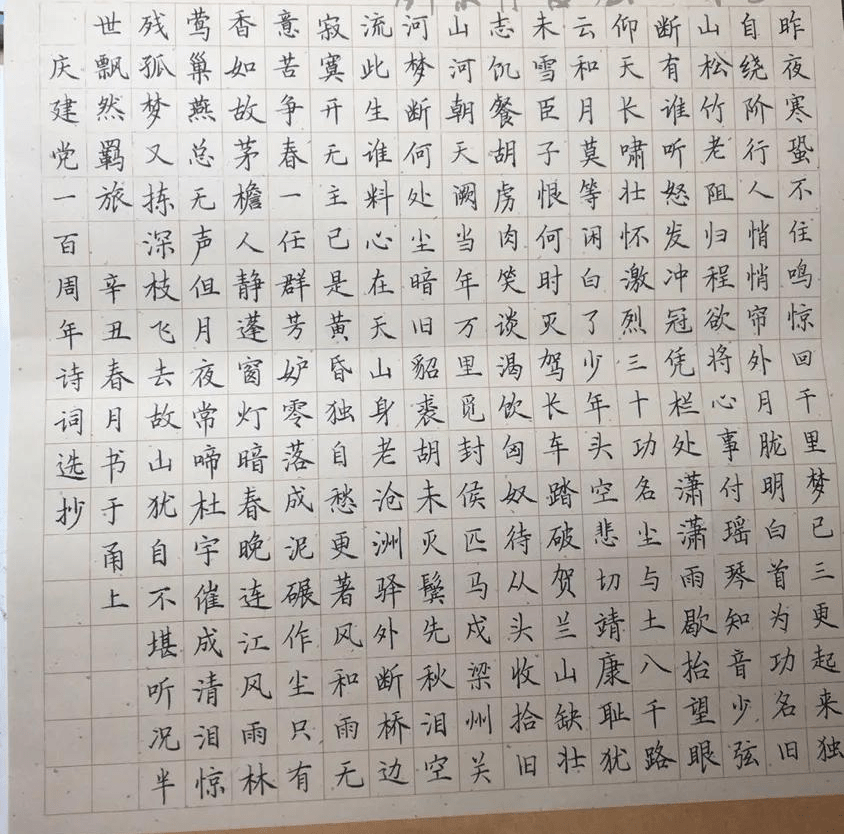 昨夜寒蛩不住鸣惊回千里梦已三更起来独
自绕阶行人悄悄帘外月胧明白首为功名旧
山松竹老阻归程欲将心事付瑶琴知音少弦
断有谁听怒发冲冠凭栏处潇潇雨歇抬望眼
仰天长啸壮怀激烈三十功名尘与土八千路
云和月莫等闲白了少年头空悲切靖康耻犹
未雪臣子恨何时灭驾长车踏破贺兰山缺壮
志饥餐胡虏肉笑谈渴饮匈奴待从头收拾旧
山河朝天阙当年万里觅封侯匹马戍梁州关
河梦断何处尘暗旧貂裘胡未灭鬓先秋泪空
流此生谁料心在天山身老沧洲驿外断桥边
寂寞开无主已是黄昏独自愁更著风和雨无
意苦争春一任群芳妒零落成泥碾作尘只有
香如故茅檐人静蓬窗灯暗春晚连江风雨林
莺巢燕总无声但月夜常啼杜宇催成清泪惊
残孤梦又拣深枝飞去故山犹自不堪听况半
世飘然羁旅 辛丑春月书于甬上
庆建党一百周年诗词选抄